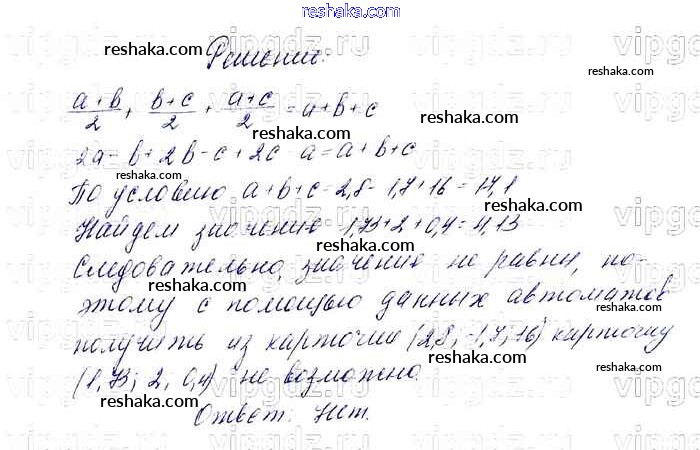 reshaka.com
vipgdz.ru
Решение:
reshaka.com
reshaka.com
(a+b)/2 + (b+c)/2 + (a+c)/2 = a+b+c
reshaka.com
reshaka.com
2a-b+2b-c+2c-a=a+b+c
reshaka.com
По условию a+b+c=2,8-1,7+16=17,1
reshaka.com
Найдем значение 1,73+2+0,4=4,13
reshaka.com
Следовательно, значение не равны, по-
reshaka.com
этому с помощью данных автоматов
получить из карточки (2,8; -1,7; 16) карточку
reshaka.com
reshaka.com
(1,73; 2; 0,4) не возможно.
reshaka.com
Ответ: Нет.
reshaka.com